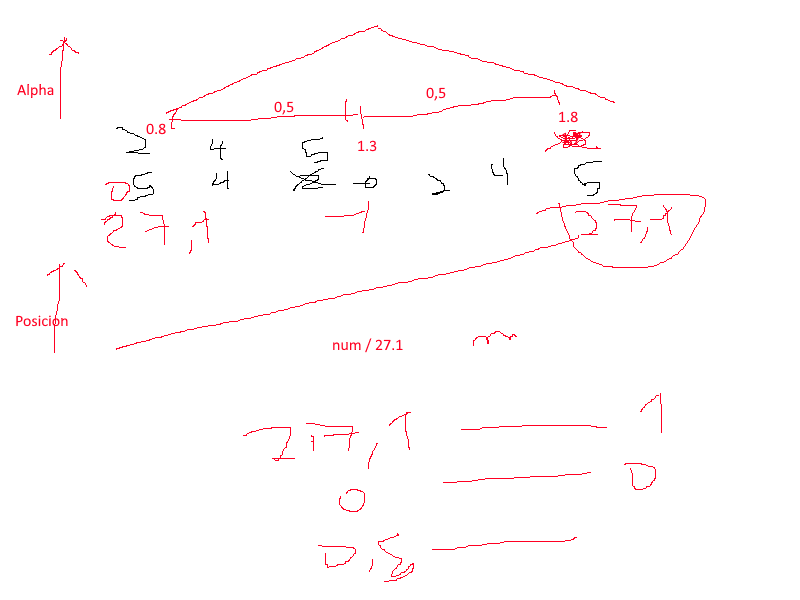 Alpha
0,5 0,5
0.8 1.3 1.8
2 4 5
0 5 4 0 2 4 5
27,1 1 27,1
Posicion
num / 27.1
27,1 1
0 0
0,5